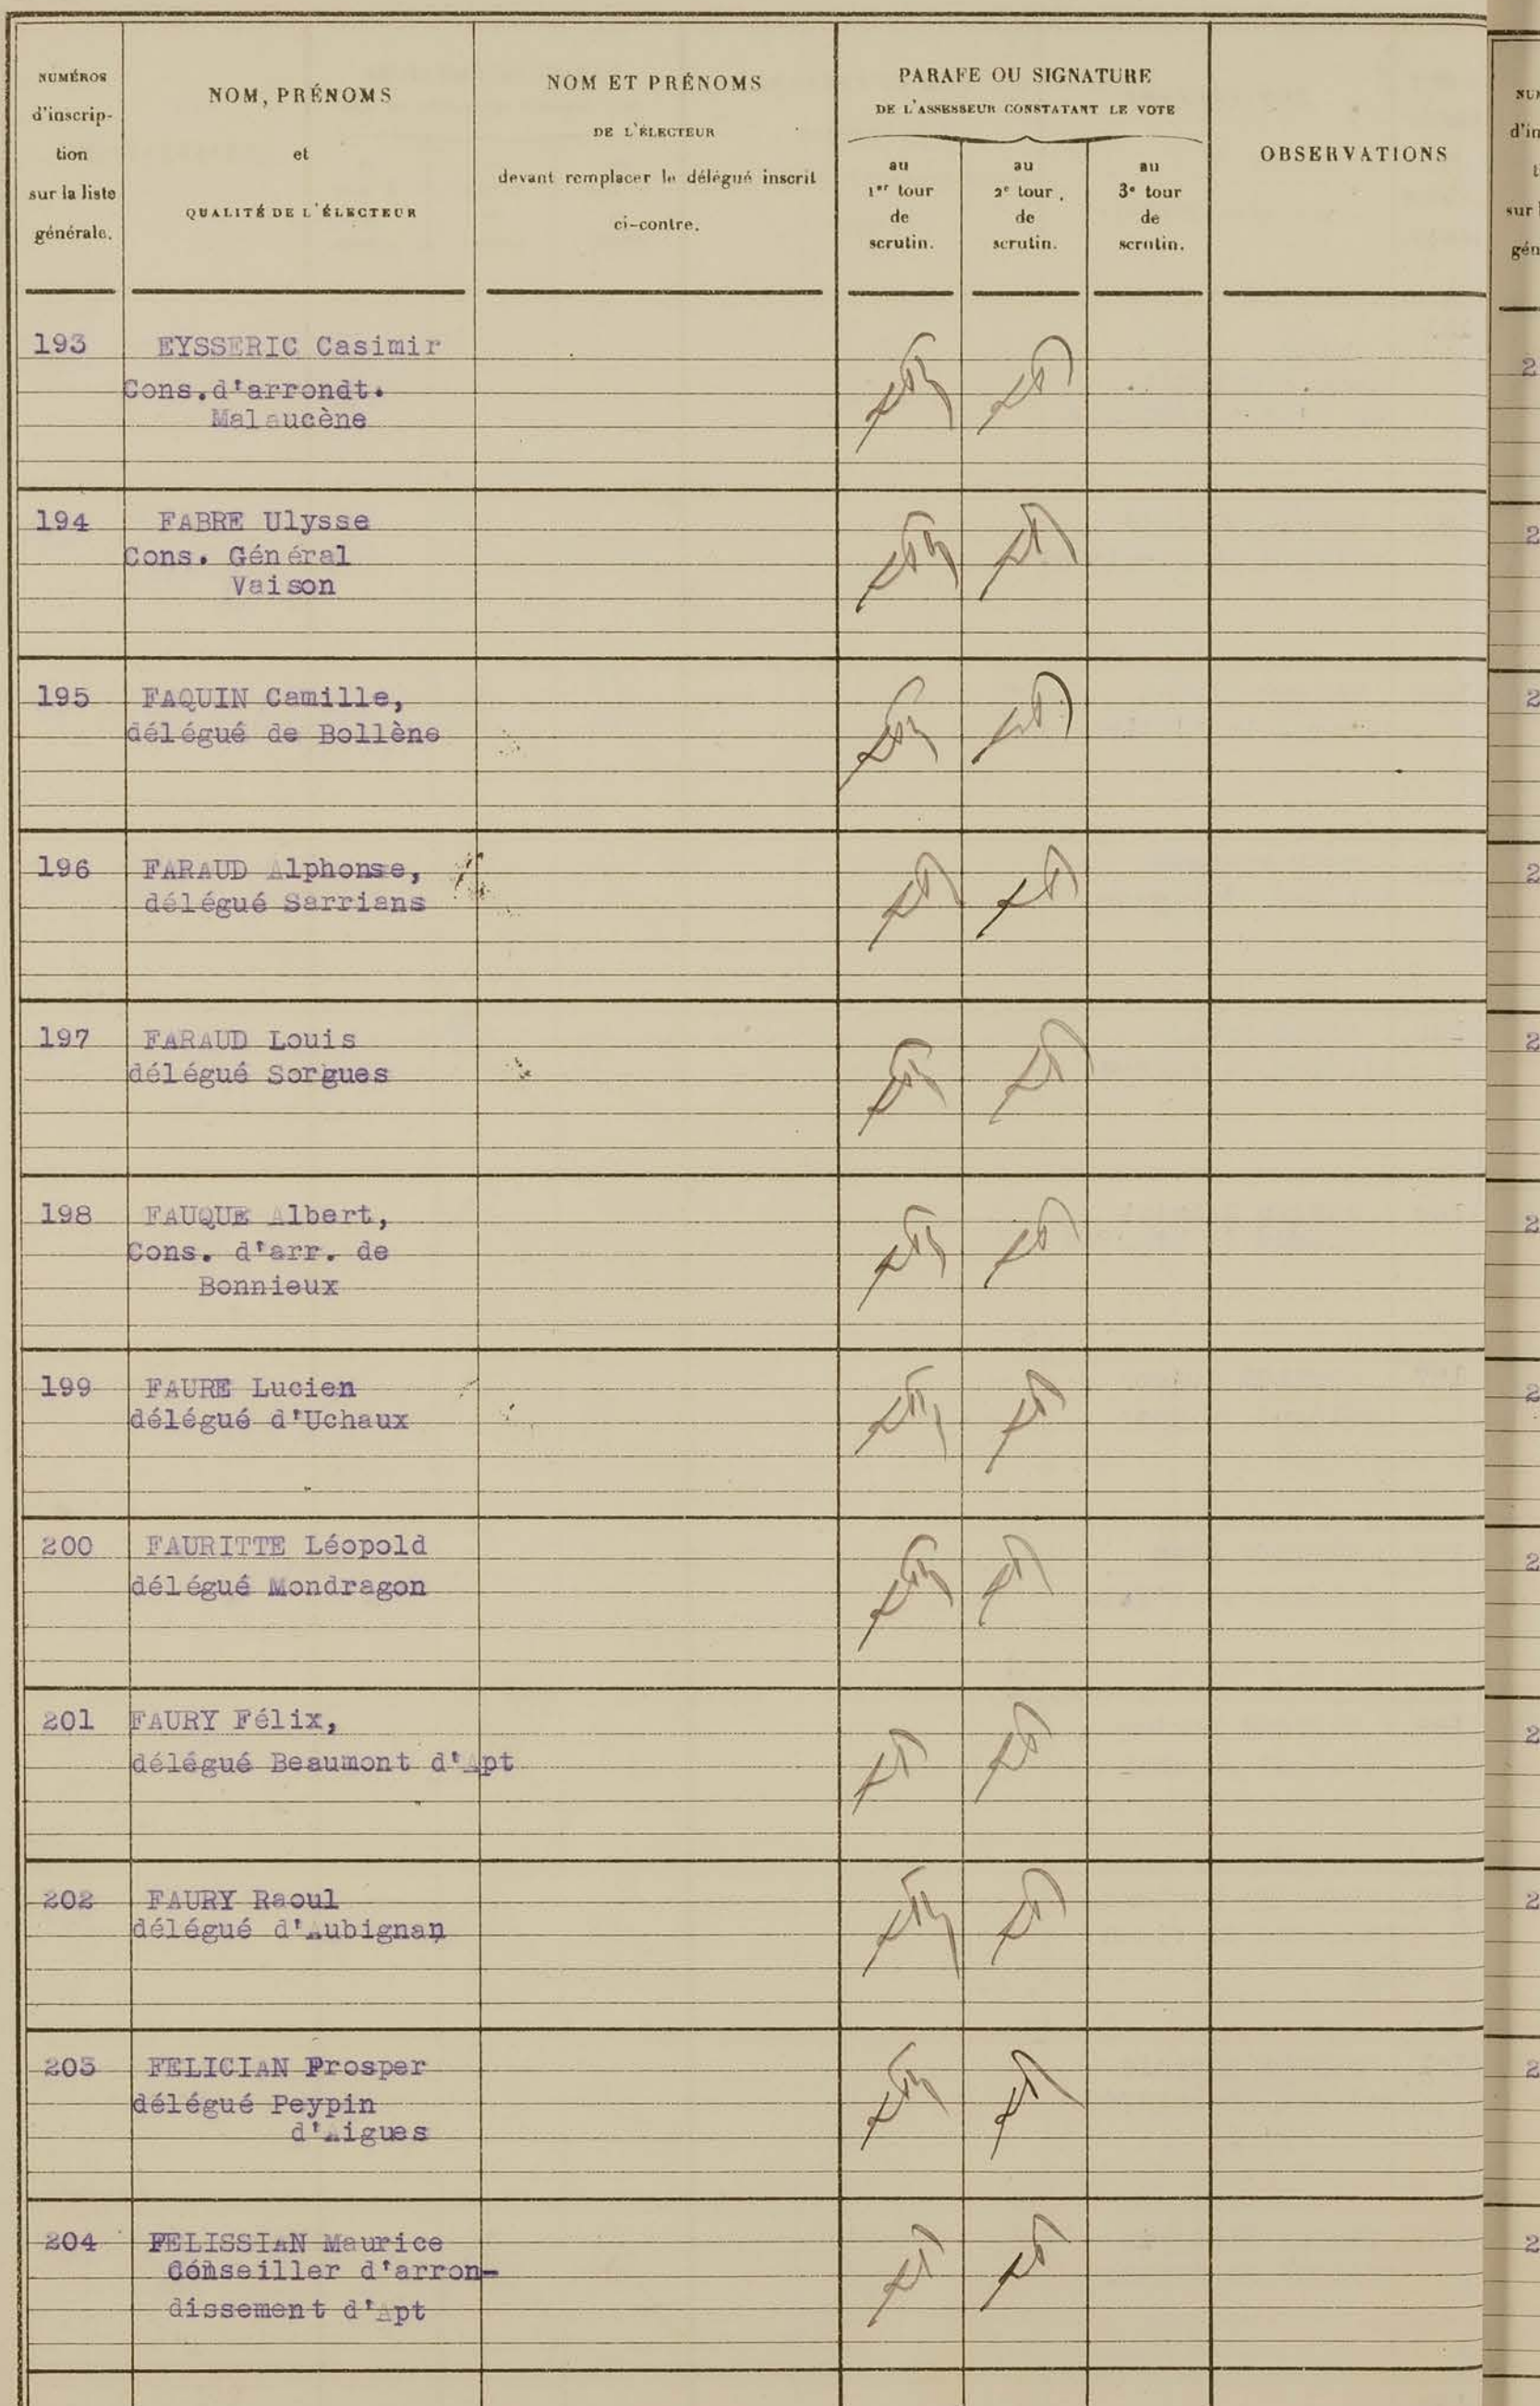 NUMÉROS
d'inscrip-
tion
sur la liste
générale.
NOM, PRÉNOMS
et
QUALITÉ DE L'ÉLECTEUR
NOM ET PRÉNOMS
DE L'ÉLECTEUR
devant remplacer le délégué inscrit
ci-contre.
PARAFE OU SIGNATURE
DE L'ASSESSEUR CONSTATANT LE VOTE
au
1er tour
de
scrutin.
au
2e tour.
de
scrutin.
au
3e tour
de
scrutin.
OBSERVATIONS
193 EYSSERIC Casimir
Cons.d'arrondt.
Malaucène
194 FABRE Ulysse
Cons. Général
Vaison
195 FAQUIN Camille,
délégué de Bollène
196 FARAUD Alphonse,
délégué Sarrians
197 FARAUD Louis
délégué Sorgues
198 FAUQUE Albert,
Cons. d'arr. de
Bonnieux
199 FAURE Lucien
délégué d'Uchaux
200 FAURITTE Léopold
délégué Mondragon
201 FAURY Félix,
délégué Beaumont d'Apt
202 FAURY Raoul
délégué d'Aubignan
203 FELICIAN Prosper
délégué Peypin
d'Aigues
204 FELISSIAN Maurice
Conseiller d'arron-
dissement d'Apt